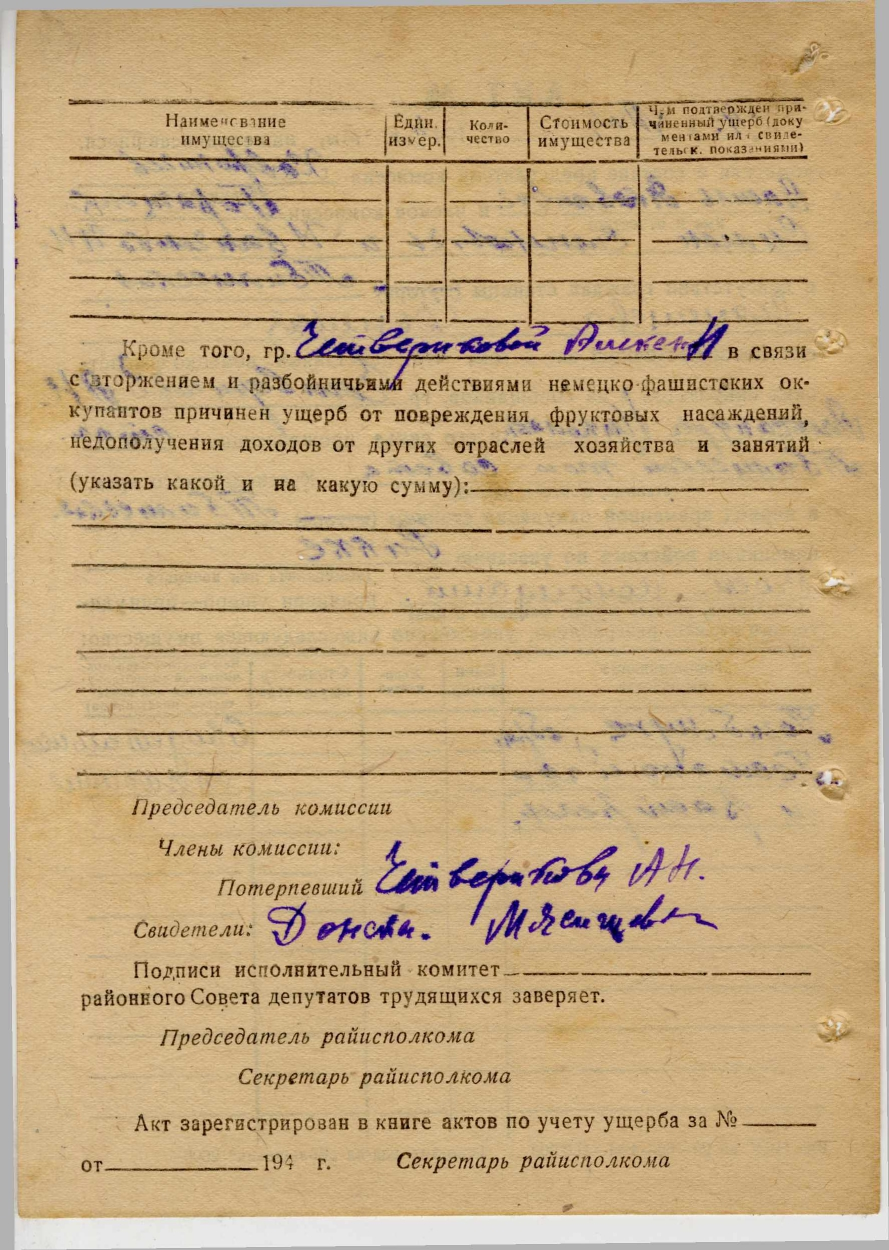 Наименование имущества
Един. измер.
Коли-чество
Стоимость имущества
Чем подтвержден при-чиненный ущерб (доку ментами или свиде-тельск. показаниями)
Кроме того, гр. Четвериковой Алексан в связи
с вторжением и разбойничьими действиями немецко-фашистских ок-
купантов причинен ущерб от повреждения фруктовых насаждений,
недополучения доходов от других отраслей хозяйства и занятий
(указать какой и на какую сумму):
Председатель комиссии
Члены комиссии:
Потерпевший Четверикова А Н.
Свидетели:
Подписи исполнительный комитет
районного Совета депутатов трудящихся заверяет.
Председатель райисполкома
Секретарь райисполкома
Акт зарегистрирован в книге актов по учету ущерба за №
от 194 г. Секретарь райисполкома